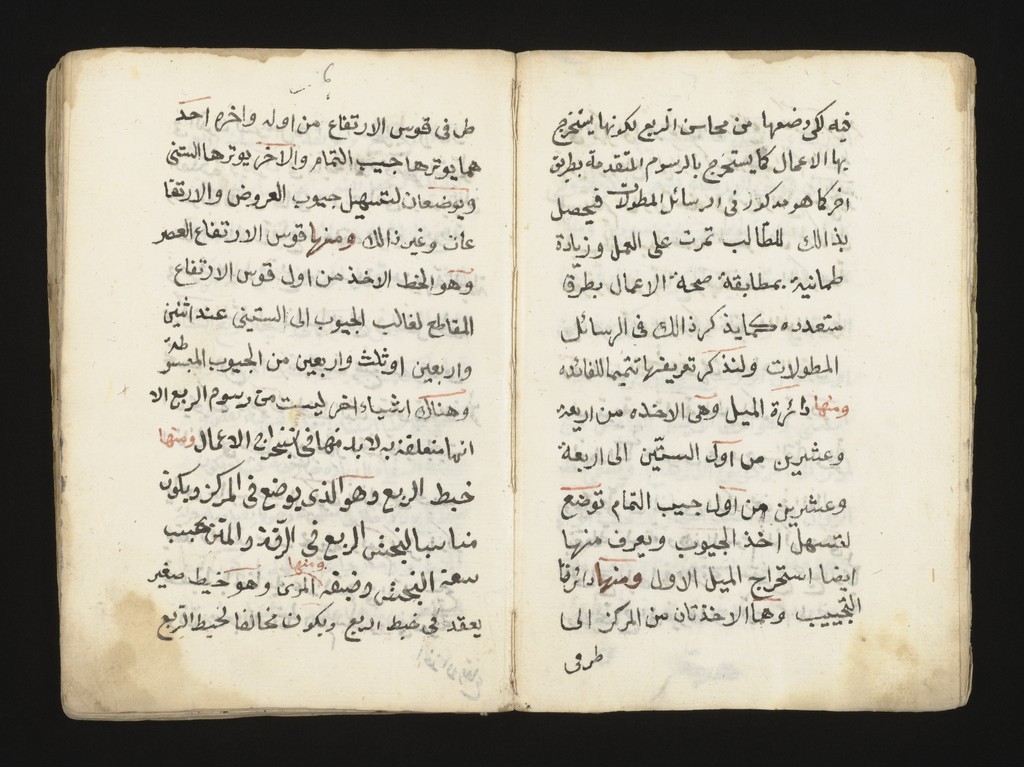 فيه لكن وضعها من محاسن الربع لكونها يستخرج
بها الاعمال كما يستخرج بالرسوم المتقدمة بطريق
اخر كما هو مذكور فى الرسائل المطولات فيحصل
بذالك للطالب تمرت على العمل وزيادة
طمانية بمطابقة صحة الاعمال بطرق
متعدده كما يذكر ذالك فى الرسائل
المطولات ولنذكر تعريفها تتميما للفائده
ومنها دائرة الميل وهى الاخذه من اربعة
وعشرين من اول الستين الى اربعة
وعشرين من اول جيب التمام توضع
لتسهل اخذ الجيوب ويعرف منها
ايضا استخراج الميل الاول ومنها دائرتا
التجييب وهما الاخذتان من المركز الى
طرفى
٦
طرفى قوس الارتفاع من اوله واخره احد
هما يوترها جيب التمام والاخر يوترها الستى
ويوضعان لتسهيل جيوب العروض والارتفا
عات وغير ذالك ومنها قوس الارتفاع العصر
وهو الخط الاخذ من اول قوس الارتفاع
المقاطع لغالب الجيوب الى الستينى عند اثنين
واربعين او ثلث واربعين من الجيوب المبسوطة
وهناك اشياء اخر ليست من رسوم الربع الا
انها متعلقة به لا بد منها فى الاعمال ومنها
خيط الربع وهو الذى يوضع فى المركز ويكون
مناسبا لنجش الربع فى الرقة والمتن بحسب
سعة النجش وضيقه ومنها المرى وهو خيط صغير
يعقد فى خيط الربع ويكون مخالفا لخيط الربع